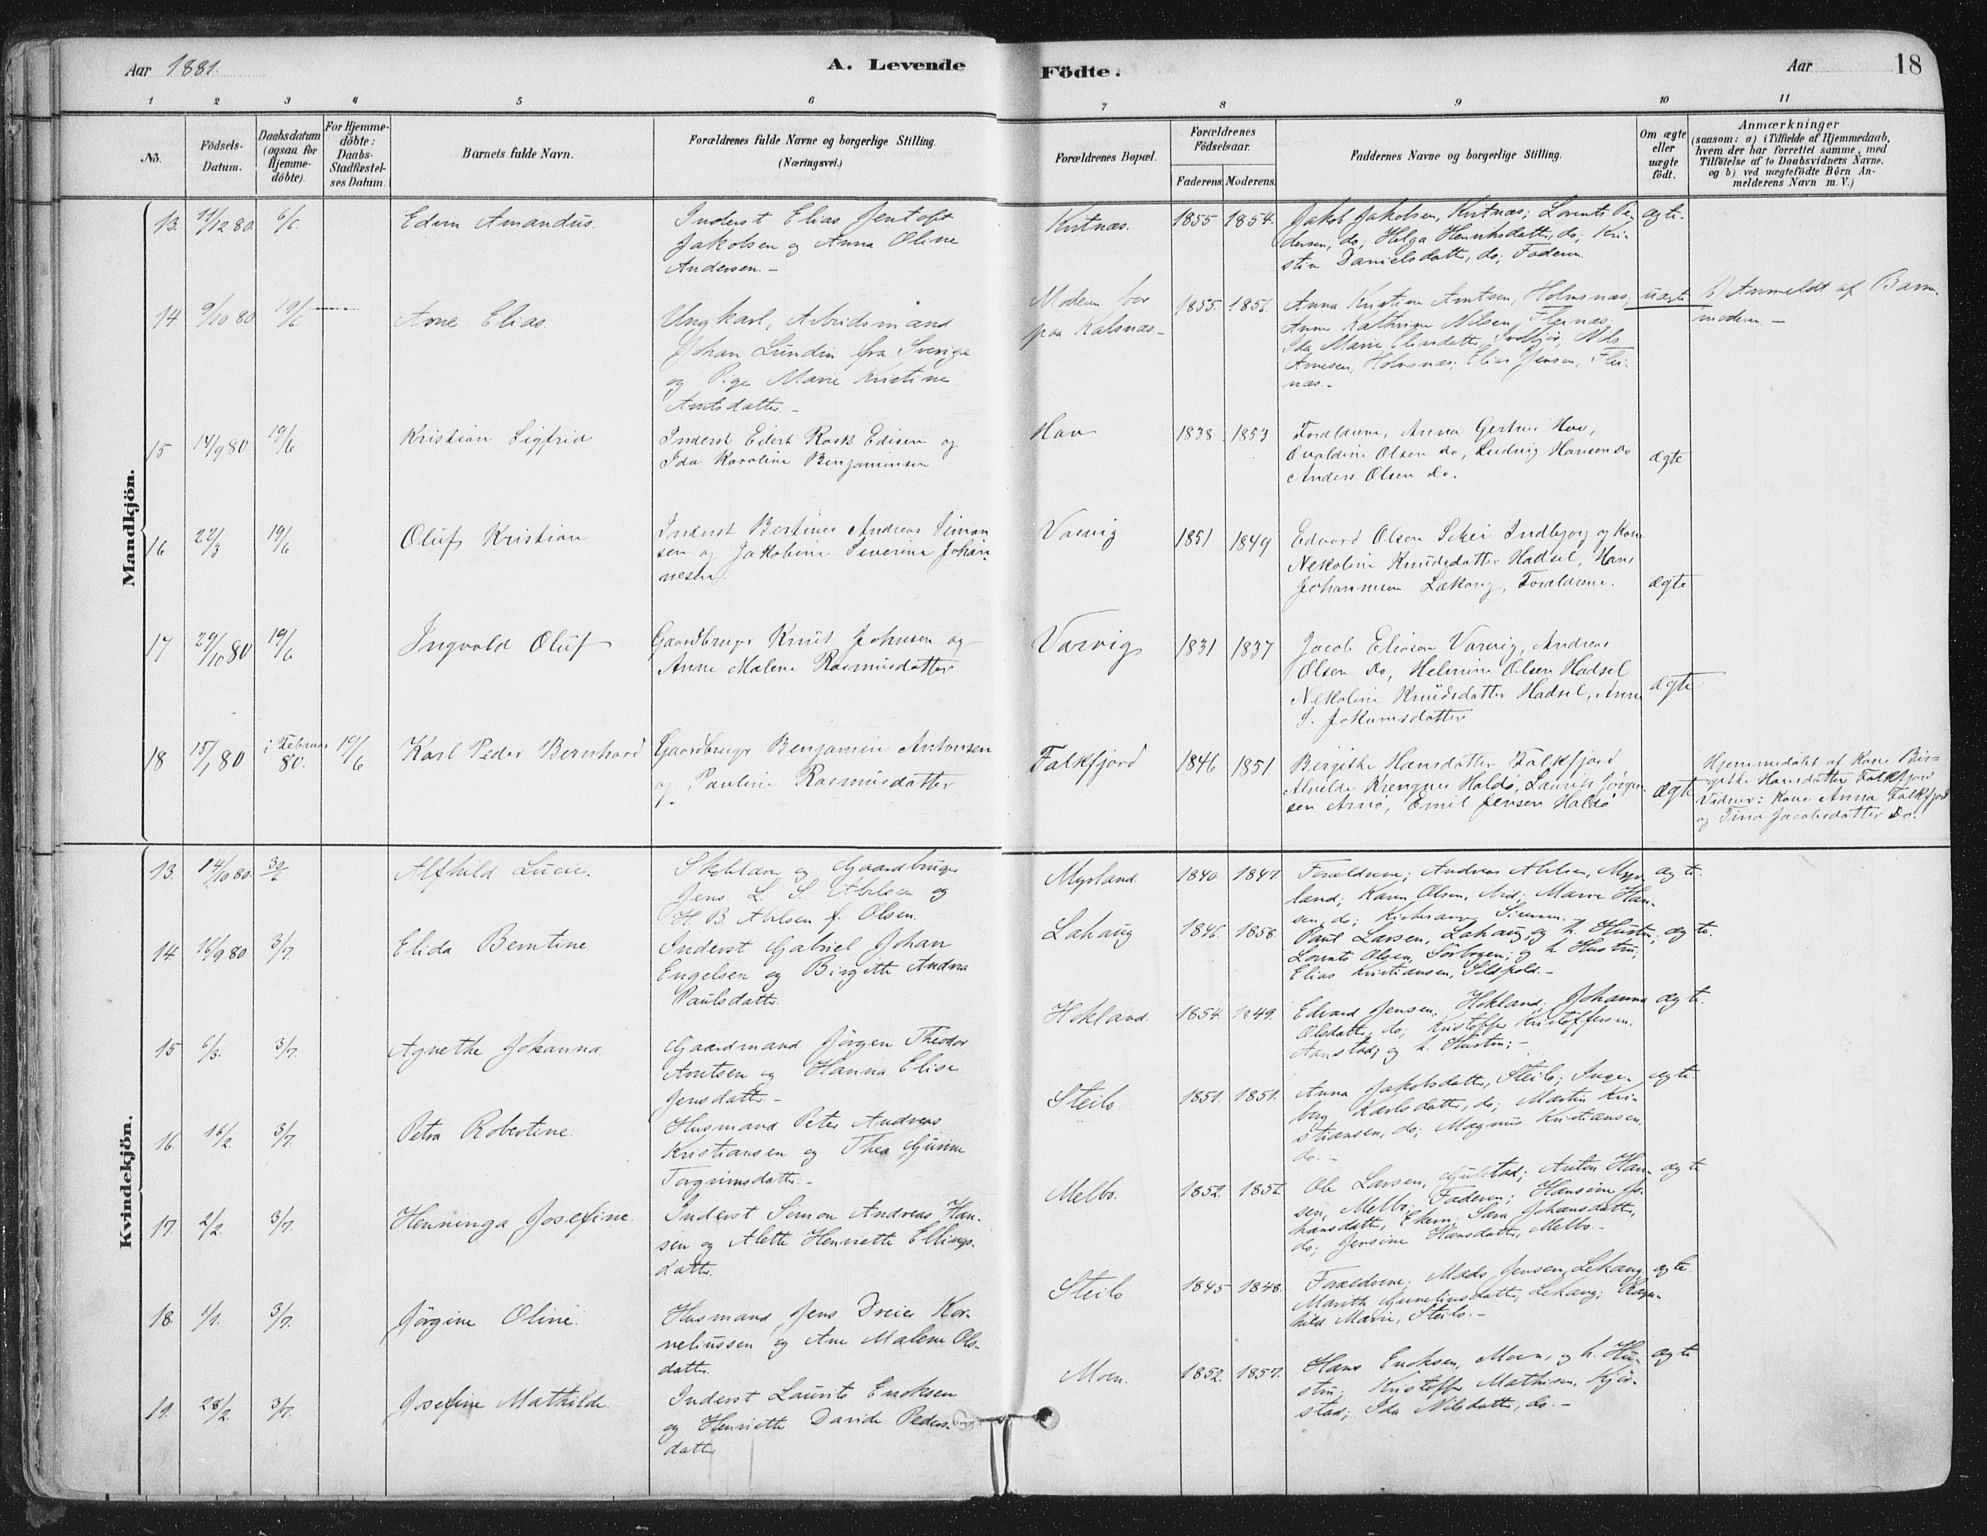 Aar 1881.
A. Levende Födte.
Aar 18
1 2 3 4 5 6 7 8 9 10 11
No.
Födsels-Datum.
Daabsdatum (ogsaa for Hjemme-döbte).
For Hjemme-döbte: Daabs-Stadfæstel-ses Datum.
Barnets fulde Navn.
Forældrenes fulde Navne og borgerlige Stilling. (Næringsvei.)
Forældrenes Bopæl.
Forældrenes Födselsaar.
Faderens. Moderens.
Faddernes Navne og borgerlige Stilling.
Om ægte eller uægte födt.
Anmærkninger
(saasom: a) i Tilfælde af Hjemmedaab,
hvem der har forrettet samme, med
Tilföielse af to Daabsvidners Navne,
og b) ved uægtefödte Börn An-
melderens Navn m. V.)
Mandkjön.
13. 11/12 80 6/6. Edvin Amandus.
Inderst Elias Jentoft
Jakobsen og Anna Oline
Andersen.-
1855 1854.
Jakob Jakobsen, Lorents Pe-
dersen, do; Helga Henriksdatter, do; Kri-
stin Danielsdatter, do; Faderen.
ægte.
14. 9/10 80 19/6 Arne Elias.
Ungkarl, Arbeidsmand
Johan Lundin fra Sverige
og Pige Marie Kristine
Arntsdatter.-
Moderen bor
paa Kalsnæs.-
1855. 1856.
Anna Kristine Arntsen, Holmsnæs;
Anne Kathrine Nilsen, Fleinæs;
Ida Marie Eliasdatter, Nils
Arnesen, Holmsnæs; Elias Jensen, Flei-
næs.-
uægte
b) Anmeldt af Barne-
moderen.-
15 14/9 80 19/6 Kristian Sigfrid
Inderst Eilert Rask Edisen og
Ida Karoline Benjaminsen
Hav
1838 1853
Forældrene, Anna Hov,
Olsen do, Ludvig Hansen do
Anders Olsen do.
ægte
16 22/3 19/6 Oluf Kristian
Inderst Bertinus Andreas Simon
sen og Jakobine Severine Johan-
nesen.
Varvig
1851 1849
Edvard Olsen Indbjorg og Kone
Nekoline Knudsdatter Hadsel, Hans
Johannesen Forældrene.
ægte
17 29/10 80 19/6 Ingvald Oluf
Gaardbruger Knut Johnsen og
Anne Malene Rasmusdatter
Varvig
1831 1837
Jacob Eliasen Varvig, Andreas
Olsen do, Helmine Olsen Hadsel
Nekoline Knudsdatter Hadsel, Anne
S. Jokumsdatter
ægte
18 15/1 80 i Februar 80. 19/6 Karl Peder Bernhard
Gaardbruger Benjamin Antonsen
og Pauline Rasmusdatter
Falkfjord
1846 1851
Birgithe Hansdatter Falkfjord
Alvilde Haldø, Laurits Jörgen
sen Arnö, Emil Jensen Haldø
ægte
Hjemmedøbt af Kone Bir-
githe Hansdatter Falkfjord
Vidner: Kone Anna Falkfjord
og Tina Jacobsdatter do.
Kvindekjön.
13. 14/10 80. Alfhild Lucie.
Skolelærer og Gaardbruger
Jens L. S. Abelsen og
H. B. Abelsen f. Olsen.
Myrland
1840 1847.
Forældrene; Andreas Abelsen, Myr-
land; Karen Olsen, Marie Han-
sen, do; Kirkesanger Simonsen.
ægte.
14 16/9 80 3/7. Elida Berntine
Inderst Gabriel Johan
Engelsen og Birgitte Andrea
Paulsdatter.
Lahaug
1846. 1858.
Paul Larsen, Lahaug og h. Hustru;
Lorents Olsen, Sörbogen; og h. Hustru;
Elias Kristiansen,
ægte.
15 6/3. 3/7. Agnethe Johanna
Gaardmand Jörgen Theodor
Arntsen og Hanna Elise
Jensdatter.-
Hokland
1854. 1849.
Edvard Jensen, Hokland; Johanna
Olsdatter, do; Kristoffer Kristoffersen,
Aanstad; og h. Hustru;-
ægte
16. 16/2 3/7. Petra Robertine.
Husmand Peter Andreas
Kristiansen og Thea Gurine
Torgrimsdatter.-
Steilo
1851. 1851.
Anna Jakobsdatter, Steilo; Inge-
borg Karlsdatter, do; Martin Kri-
stiansen, do; Magnus Kristiansen,
do.-
ægte
17. 2/2. 3/7. Henninga Josefine.
Inderst Simon Andreas Han-
sen og Alette Henriette Ellings-
datter.
Melbo.
1852. 1856
Ole Larsen, Gulstad; Anton Han-
sen, Melbo; Faderen; Hansine Jo-
hansdatter, Ekren; Sara Johansdatter,
do; Jensine Hansdatter, Melbo.-
ægte
18. 1/1. 3/7. Jörgine Oline.
Husmand Jens Dreier Kor-
neliussen og Ane Malene Ols-
datter.
Steilo
1845 1848.
Forældrene; Mads Jensen, Lekang;
Marith Korneliusdatter, Lekang; Ragn-
hild Marie, Steilo.-
ægte
19. 28/2 3/7. Josefine Mathilde.
Inderst Laurits Enoksen
og Henriette Davida Peders-
datter
Moen.
1852. 1857.
Hans Enoksen, Moen, og h. Hu-
stru; Kristoffer Mathisen, Kjör-
stad; Ida Nilsdatter, do.-
ægte